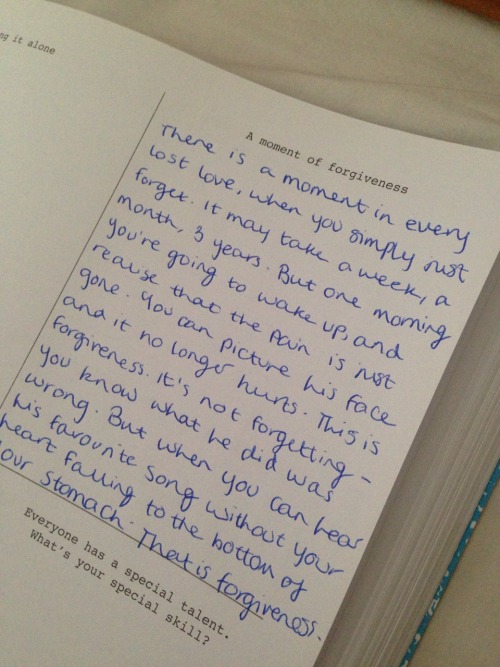 ng it alone
A moment of forgiveness
There is a moment in every
lost love, when you simply just
forget. It may take a week, a
month, 3 years. But one morning
you're going to wake up, and
realise that the pain is just
gone. You can picture his face
and it no longer hurts. This is
forgiveness. It's not forgetting -
you know what he did was
wrong. But when you can hear
his favourite song without your
heart falling to the bottom of
our stomach. That is forgiveness.
Everyone has a special talent.
What's your special skill?